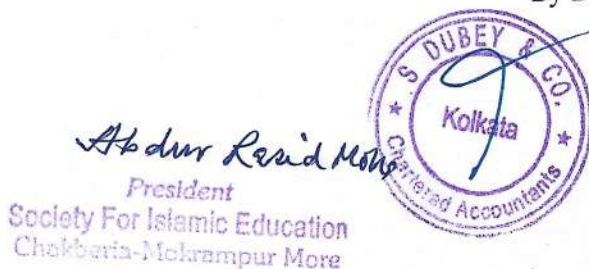 S DUBEY & CO.
Kolkata
Chartered Accountants
Abdur Rasid
President
Society For Islamic Education
Chakberia-Mokrampur More